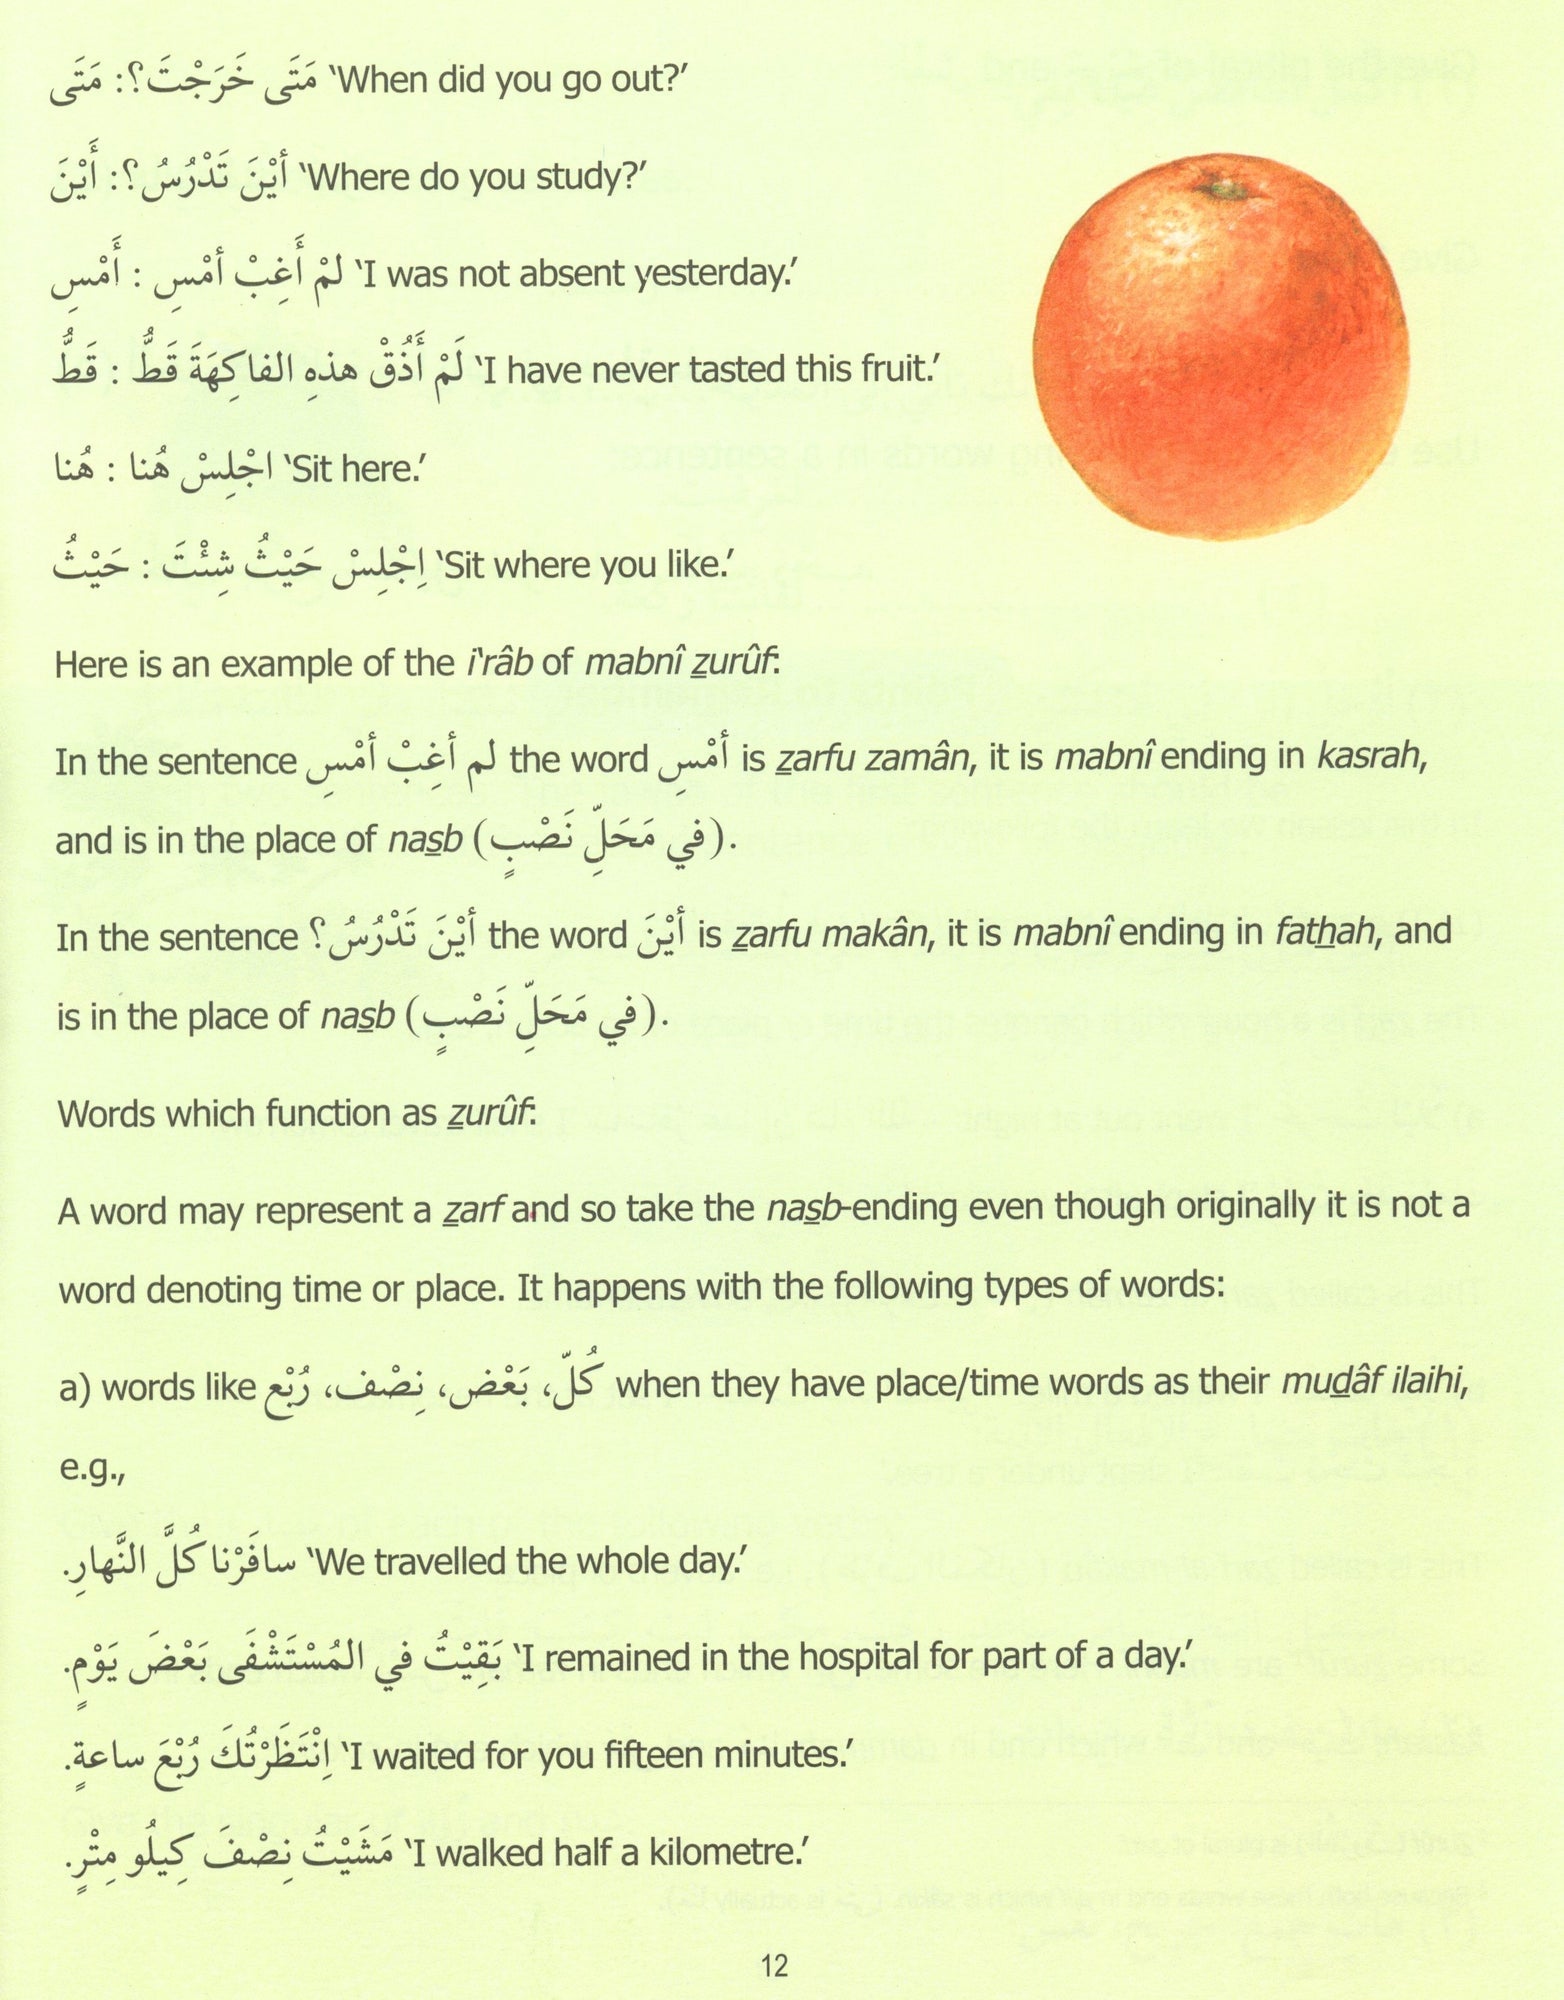 مَتَى خَرَجْتَ؟: مَتَى ‘When did you go out?’
أيْنَ تَدْرُسُ؟: أَيْنَ ‘Where do you study?’
لمْ أَغِبْ أمْسِ : أَمْسِ ‘I was not absent yesterday.’
لَمْ أَذُقْ هذهِ الفاكِهَةَ قَطُّ : قَطُّ ‘I have never tasted this fruit.’
اجْلِسْ هُنا : هُنا ‘Sit here.’
اِجْلِسْ حَيْثُ شِئْتَ : حَيْثُ ‘Sit where you like.’
Here is an example of the i‘râb of mabnî zurûf:
In the sentence لم أغِبْ أمْسِ the word أمْسِ is zarfu zamân, it is mabnî ending in kasrah,
and is in the place of nasb (في مَحَلِّ نَصْبٍ).
In the sentence أيْنَ تَدْرُسُ؟ the word أيْنَ is zarfu makân, it is mabnî ending in fathah, and
is in the place of nasb (في مَحَلِّ نَصْبٍ).
Words which function as zurûf:
A word may represent a zarf and so take the nasb-ending even though originally it is not a
word denoting time or place. It happens with the following types of words:
a) words like كُلّ، بَعْض، نِصْف، رُبْع when they have place/time words as their mudâf ilaihi,
e.g.,
سافَرْنا كُلَّ النَّهارِ. ‘We travelled the whole day.’
بَقِيْتُ في المُسْتَشْفَى بَعْضَ يَوْمٍ. ‘I remained in the hospital for part of a day.’
اِنْتَظَرْتُكَ رُبْعَ ساعةٍ. ‘I waited for you fifteen minutes.’
مَشَيْتُ نِصْفَ كِيلُو مِتْرٍ. ‘I walked half a kilometre.’
12